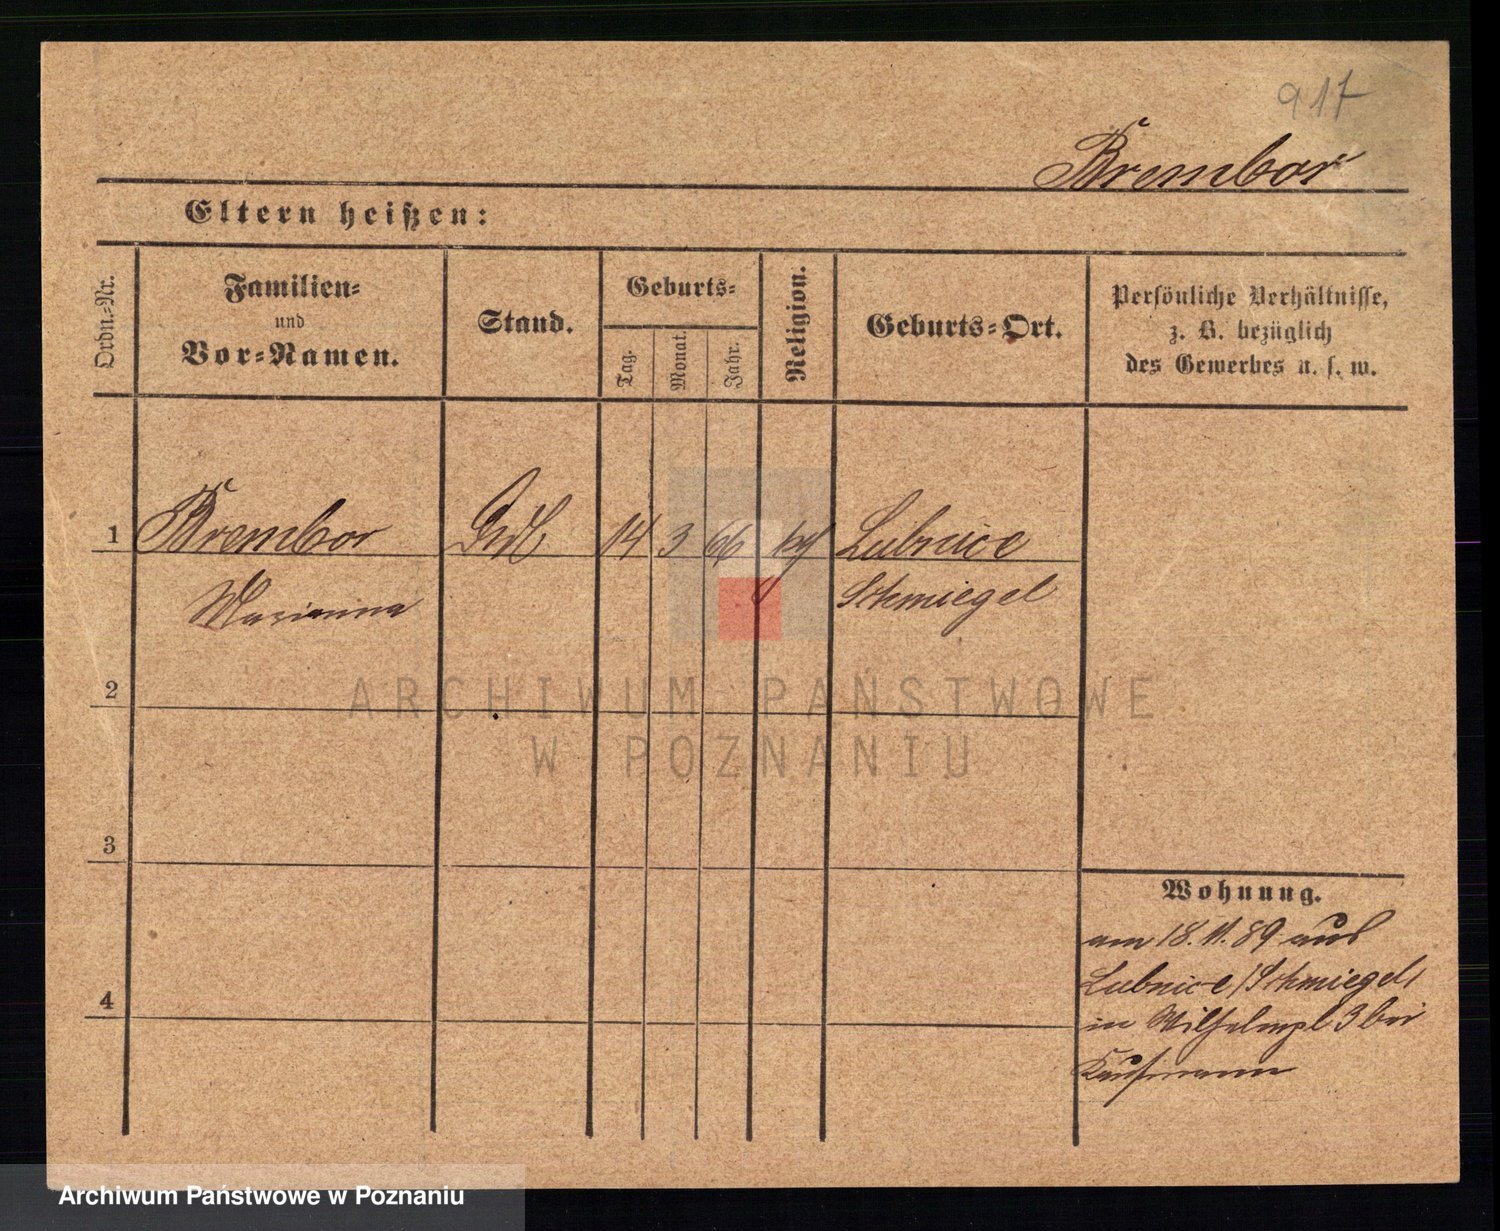 917
Brembor
Eltern heißen:
Ordn.-Nr.
Familien-
und
Vor-Namen.
Stand.
Geburts-
Tag.
Monat.
Jahr.
Religion.
Geburts-Ort.
Persönliche Verhältnisse,
z. B. bezüglich
des Gewerbes u. s. w.
1 Brembor 14 3 66 Lubnice
Marianna Schmiegel
2
ARCHIWUM PAŃSTWOWE
W POZNANIU
3
Wohnung.
am 18.11.89 aus
Lubnice/Schmiegel,
4
in Wilhelmpl 3 bei
Kaufmann
Archiwum Państwowe w Poznaniu